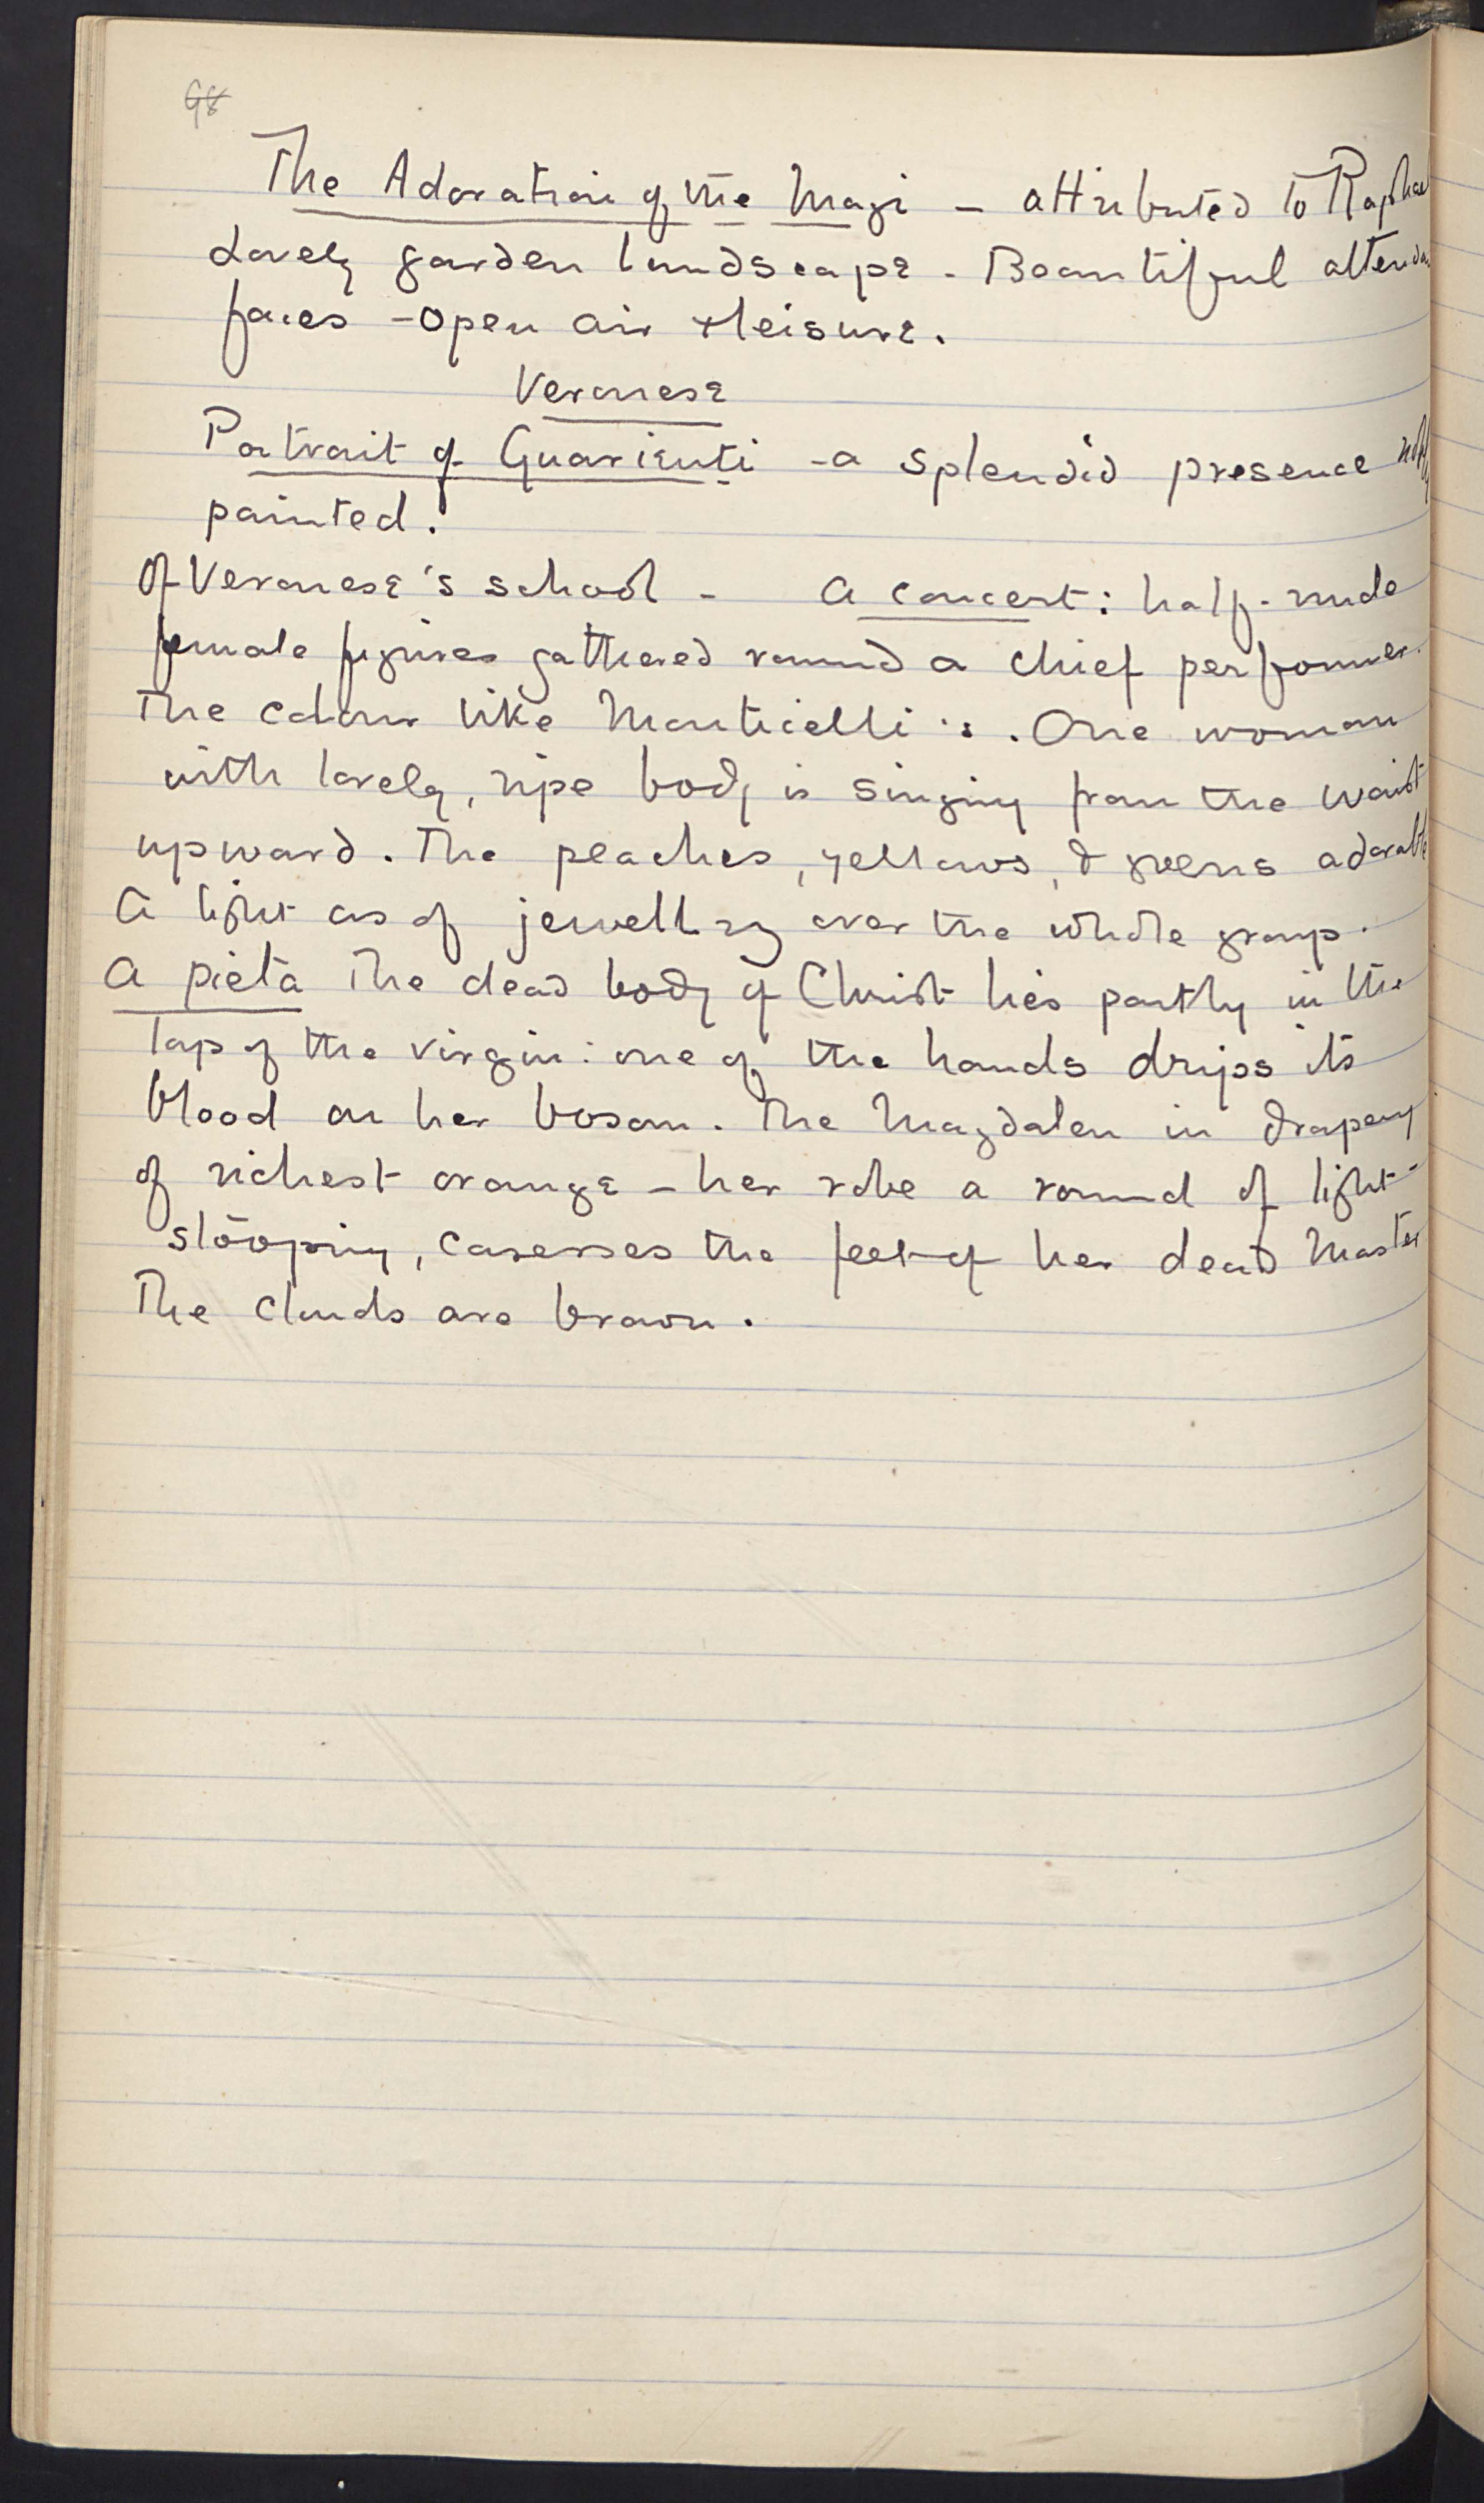 98
The Adoration of the Magi – attributed to Raphael
Lovely garden landscape – Beautiful
faces – open air & leisure.
Veronese
Portrait of Guarienti – a splendid presence
painted.
Of Veronese's school – A concert: half-nude
female figures gathered round a chief performer.
The colour like Monticelli's. One woman
with lovely, ripe body is singing from the waist
upward. The peaches, yellows, & greens adorable
A light as of jewellry over the whole group.
A pietà The dead body of Christ lies partly in the
lap of the virgin: one of the hands drips its
blood on her bosom. The Magdalen in drapery
of richest orange – her robe a round of light –
stooping, caresses the feet of her dead Master
The clouds are brown.